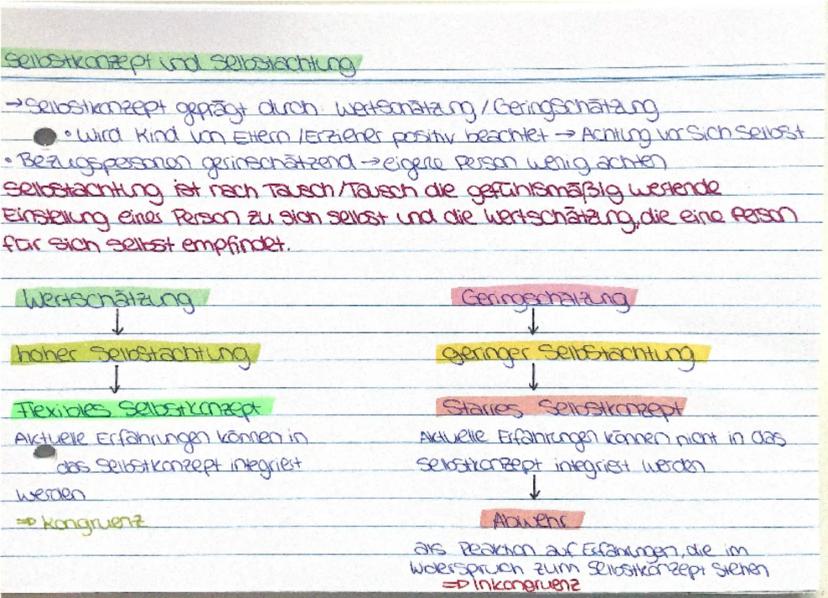 Selbstkonzept und Selbstachtung
→ Selbstkonzept geprägt durch Wertschätzung / Geringschätzung
• Wird Kind von Eltern / Erzieher positiv beachtet → Achtung vor sich selbst
• Bezugspersonen gerinschätzend → eigene Person wenig achten
Selbstachtung ist nach Tausch/Tausch die gefühlsmäßig wertende
Einstellung einer Person zu sich selbst und die Wertschätzung, die eine Person
für sich selbst empfindet.
Wertschätzung
↓
hoher Selbstachtung
↓
Flexibles Selbstkonzept
Aktuelle Erfahrungen können in
das Selbstkonzept integriert
werden
⇒ Kongruenz
Geringschätzung
↓
geringer Selbstachtung
↓
Starres Selbstkonzept
Aktuelle Erfahrungen können nicht in das
Selbstkonzept integriert werden
↓
Abwehr
als Reaktion auf Erfahrungen, die im
Widerspruch zum Selbstkonzept stehen
⇒ Inkongruenz